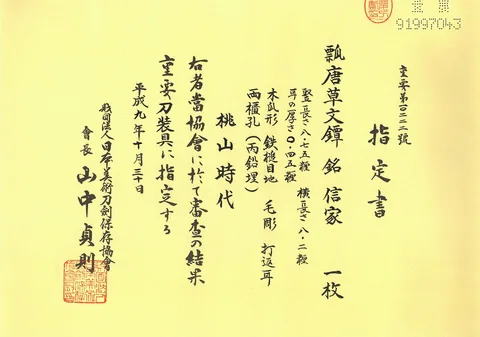 91997043
重要第〇二二二號
指定書
瓢唐草文鐔 銘 信家 一枚
竪長さ八・七五糎 横長さ八・二糎
耳の厚さ〇・四五糎
木瓜形 鉄槌目地 毛彫 打返耳
両櫃孔(両鉛埋)
桃山時代
右者當協會に於て審査の結果
重要刀装具に指定する
平成九年十月三十日
財団法人日本美術刀剣保存協會
會長 山中貞則